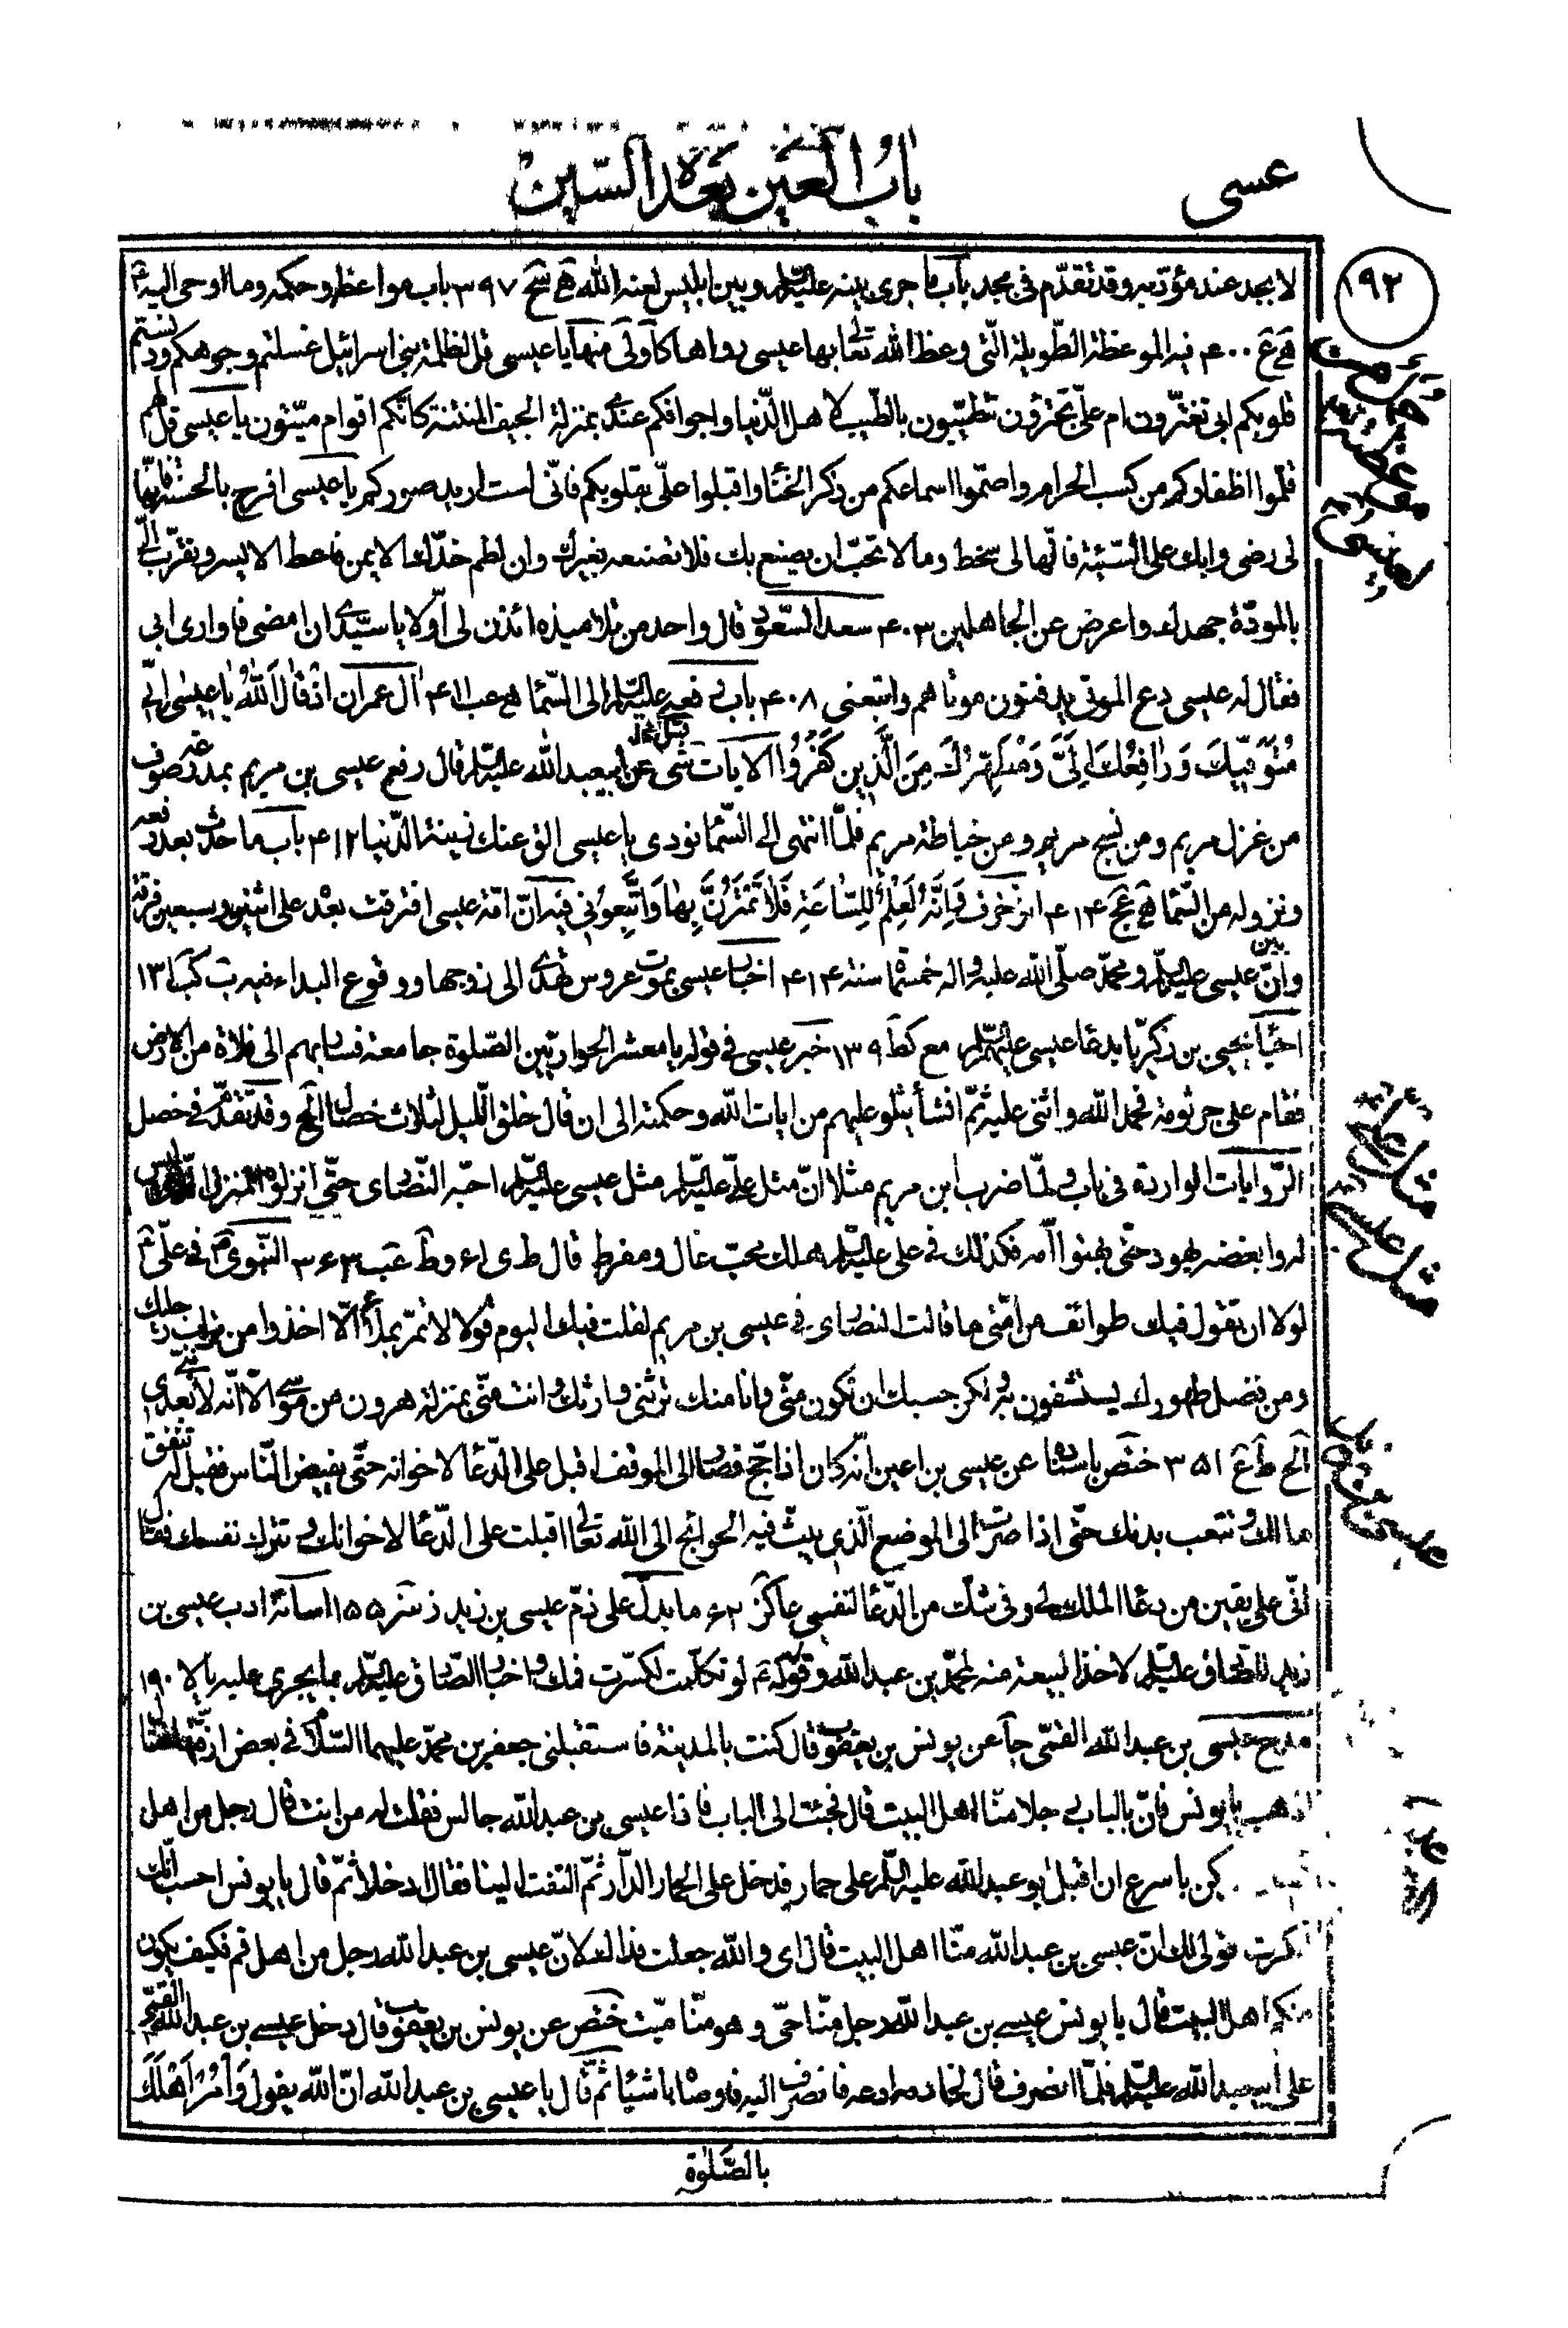 عسى
باب العين بعده السين
١٩٢
لا يجد عند مؤدبه وقد تقدم في مجد باب ما جرى بينه عليه السلام وبين ابليس لعنه الله هج سح ٣٩٧ باب مواعظه وحكمه وما اوحى اليه
هج ع ٤٠٠ فيه الموعظة الطويلة التي وعظ الله تعالى بها عيسى رواها كا ولى منها يا عيسى قل لظلمة بني اسرائيل غسلتم وجوهكم ودنستم
قلوبكم ابي تغترون ام علي تجترؤن تطيبون بالطيب لاهل الدنيا واجوافكم عندي بمنزلة الجيف المنتنة كانكم اقوام ميتون يا عيسى قل لهم
قلموا اظفاركم من كسب الحرام واصموا اسماعكم من ذكر الخنا واقبلوا علي بقلوبكم فاني لست اريد صوركم يا عيسى افرح بالحسنة فانها
لي رضى وابك على السيئة فانها لي سخط وما لا تحب ان يصنع بك فلا تصنعه بغيرك وان لطم خدك الايمن فاعط الايسر وتقرب الي
بالمودة جهدك واعرض عن الجاهلين ٤٠٣ سعد السعود قال واحد من تلاميذه ائذن لي اولا يا سيدي ان امضي فاواري ابي
فقال له عيسى دع الموتى يدفنون موتاهم واتبعني ٤٠٨ باب رفعه عليه السلام الى السماء هج عب ٤١١ ال عمران اذ قال الله يا عيسى اني
متوفيك ورافعك الي ومطهرك من الذين كفروا الايات شى عن ابيعبد الله عليه السلام قال رفع عيسى بن مريم بمدرعة صوف
من غزل مريم ومن نسج مريم ومن خياطة مريم فلما انتهى الى السماء نودي يا عيسى الق عنك زينة الدنيا ٤١٢ باب ما حدث بعد رفعه
ونزوله من السماء هج عج ٤١٤ الزخرف وانه لعلم للساعة فلا تمترن بها واتبعوني فيه ان امة عيسى افترقت بعده على اثنين وسبعين فرقة
وان بين عيسى عليه السلام ومحمد صلى الله عليه واله خمسمائة سنة ٤١٤ اخبار عيسى بموت عروس تهدى الى زوجها ووقوع البداء فيه ب كب ١٣١
احياء يحيى بن زكريا بدعاء عيسى عليهما السلام مع كط ١٣٩ خبر عيسى في قوله يا معشر الحواريين الصلوة جامعة فسار بهم الى فلاة من الارض
فقام على جرثومة فحمد الله واثنى عليه ثم انشأ يتلو عليهم من ايات الله وحكمته الى ان قال خلق الليل لثلاث خصال الخ وقد تقدم في خصل
الروايات الواردة في باب ولما ضرب ابن مريم مثلا ان مثل علي عليه السلام مثل عيسى عليه السلام احبه النصارى حتى انزلوه المنزل الذي ليس
له وابغضه يهود حتى بهتوا امه فكذلك في علي عليه السلام هلك محب غال ومفرط قال ط ى ا٤ وط عب ٣٦٣ النبوي في علي
لولا ان تقول فيك طوائف من امتي ما قالت النصارى في عيسى بن مريم لقلت فيك اليوم قولا لا تمر بملاء الا اخذوا من تراب رجليك
ومن فضل طهورك يستشفون به ولكن حسبك ان تكون مني وانا منك ترثني وارثك وانت مني بمنزلة هرون من موسى الا انه لا نبي بعدي
الخ ط ع ٣٥١ ختص باسناده عن عيسى بن اعين انه كان اذا حج فصار الى الموقف اقبل على الدعاء لاخوانه حتى يفيض الناس فقيل له تنفق
مالك وتتعب بدنك حتى اذا صرت الى الموضع الذي يبث فيه الحوائج الى الله تعالى اقبلت على الدعاء لاخوانك وتترك نفسك فقال
اني على يقين من دعاء الملك لي وفي شك من الدعاء لنفسي عا كز ٦٢ ما يدل على ذم عيسى بن زيد ز نر ١٥٥ اسائة ادب عيسى بن
زيد للصادق عليه السلام لاخذ البيعة منه لمحمد بن عبد الله وقوله له لو تكلمت لكسرت فمك واخبار الصادق عليه السلام بما يجري عليه يا لا ١٩٠
مدح عيسى بن عبد الله القمي جا عن يونس بن يعقوب قال كنت بالمدينة فاستقبلني جعفر بن محمد عليهما السلام في بعض ازقتها فقال
اذهب يا يونس فان بالباب رجلا منا اهل البيت قال فجئت الى الباب فاذا عيسى بن عبد الله جالس فقلت له من انت قال رجل من اهل
يكن باسرع ان اقبل ابو عبد الله عليه السلام على حمار فدخل على الحمار الدار ثم التفت الينا فقال ادخلا ثم قال يا يونس احسب انك
انكرت قولي لك ان عيسى بن عبد الله منا اهل البيت قال اي والله جعلت فداك لان عيسى بن عبد الله رجل من اهل قم فكيف يكون
منكم اهل البيت قال يا يونس عيسى بن عبد الله رجل منا حي وهو منا ميت ختص عن يونس بن يعقوب قال دخل عيسى بن عبد الله القمي
على ابيعبد الله عليه السلام فلما انصرف قال لخادمه ادعه فانصرف اليه فاوصاه باشياء ثم قال يا عيسى بن عبد الله ان الله يقول وأمر اهلك
بالصلوة